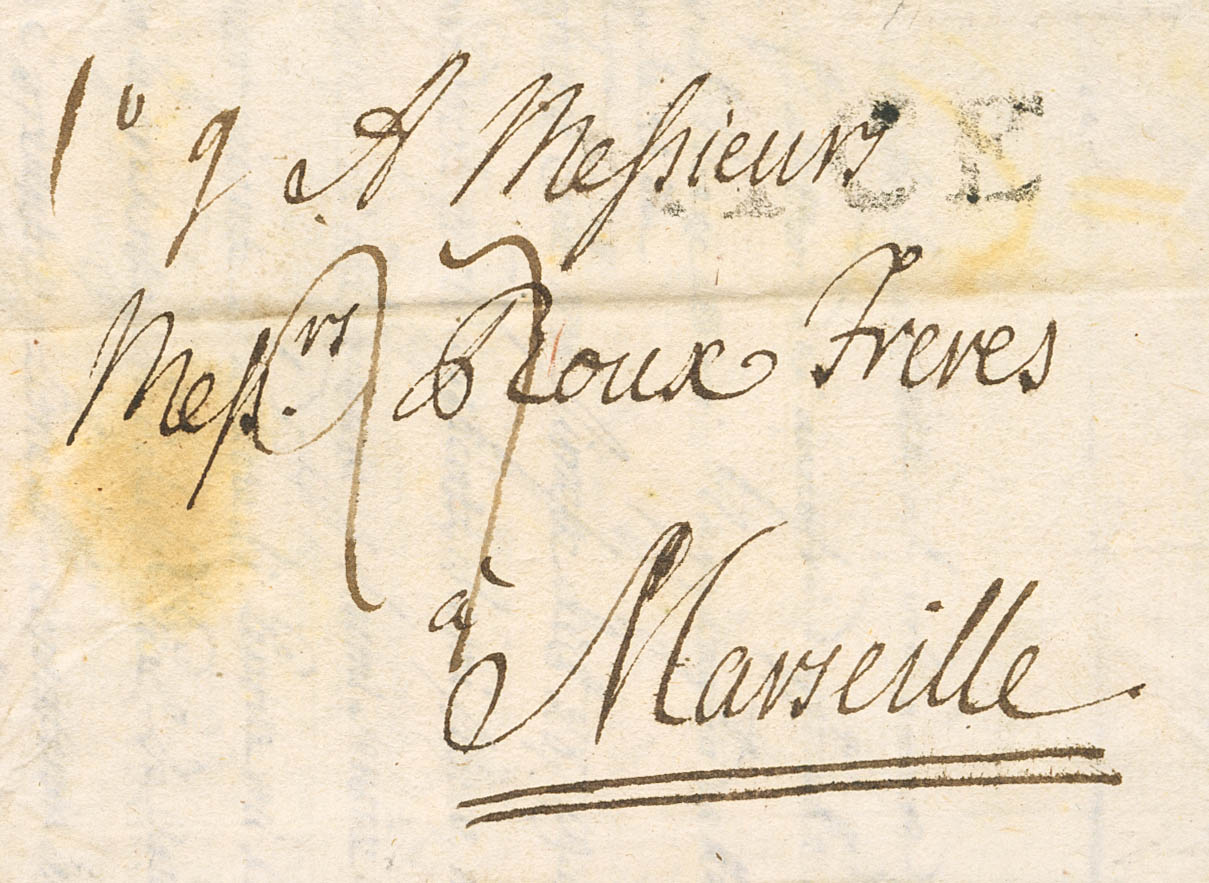 1º 9 A Messieurs
Mess.rs Roux Freres
à Marseille